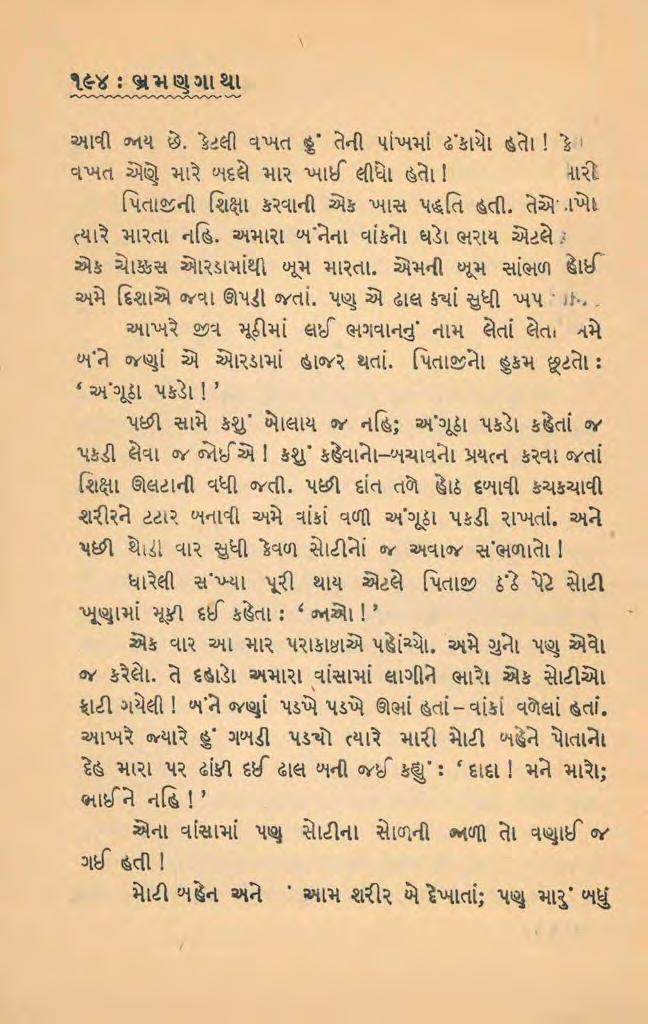 ૧૯૪ : ભ્રમણગાથા
આવી જાય છે. કેટલી વખત હું તેની પાંખમાં ઢંકાયો હતો !
વખત એણે મારે બદલે માર ખાઈ લીધો હતો !
પિતાજીની શિક્ષા કરવાની એક ખાસ પદ્ધતિ હતી.
ત્યારે મારતા નહિ. અમારા બંનેના વાંકનો ઘડો ભરાય એટલે
એક ચોક્કસ ઓરડામાંથી બૂમ મારતા. એમની બૂમ સાંભળ હોઈ
અમે દિશાએ જવા ઊપડી જતાં. પણ એ ઢાલ ક્યાં સુધી
આખરે જીવ મૂઠીમાં લઈ ભગવાનનું નામ લેતાં
બંને જણાં એ ઓરડામાં હાજર થતાં. પિતાજીનો હુકમ છૂટતો :
‘ અંગૂઠા પકડો ! ’
પછી સામે કશું બોલાય જ નહિ; અંગૂઠા પકડો કહેતાં જ
પકડી લેવા જ જોઈએ ! કશું કહેવાનો–બચાવનો પ્રયત્ન કરવા જતાં
શિક્ષા ઊલટાની વધી જતી. પછી દાંત તળે હોઠ દબાવી કચકચાવી
શરીરને ટટાર બનાવી અમે વાંકાં વળી અંગૂઠા પકડી રાખતાં. અને
પછી થોડી વાર સુધી કેવળ સોટીનો જ અવાજ સંભળાતો !
ધારેલી સંખ્યા પૂરી થાય એટલે પિતાજી ઠંઠે પેટે સોટી
ખૂણામાં મૂકી દઈ કહેતા : ‘ જાઓ ! ’
એક વાર આ માર પરાકાષ્ઠાએ પહોંચ્યો. અમે ગુનો પણ એવો
જ કરેલો. તે દહાડો અમારા વાંસામાં લાગીને ભારો એક સોટીઓ
ફાટી ગયેલી ! બંને જણાં પડખે પડખે ઊભાં હતાં – વાંકાં વળેલાં હતાં.
આખરે જ્યારે હું ગબડી પડ્યો ત્યારે મારી મોટી બહેને પોતાનો
દેહ મારા પર ઢાંકી દઈ ઢાલ બની જઈ કહ્યું : ‘ દાદા ! મને મારો;
ભાઈને નહિ ! ’
એના વાંસામાં પણ સોટીના સોળની જાળી તો વણાઈ જ
ગઈ હતી !
મોટી બહેન અને આમ શરીર બે દેખાતાં; પણ મારું બધું